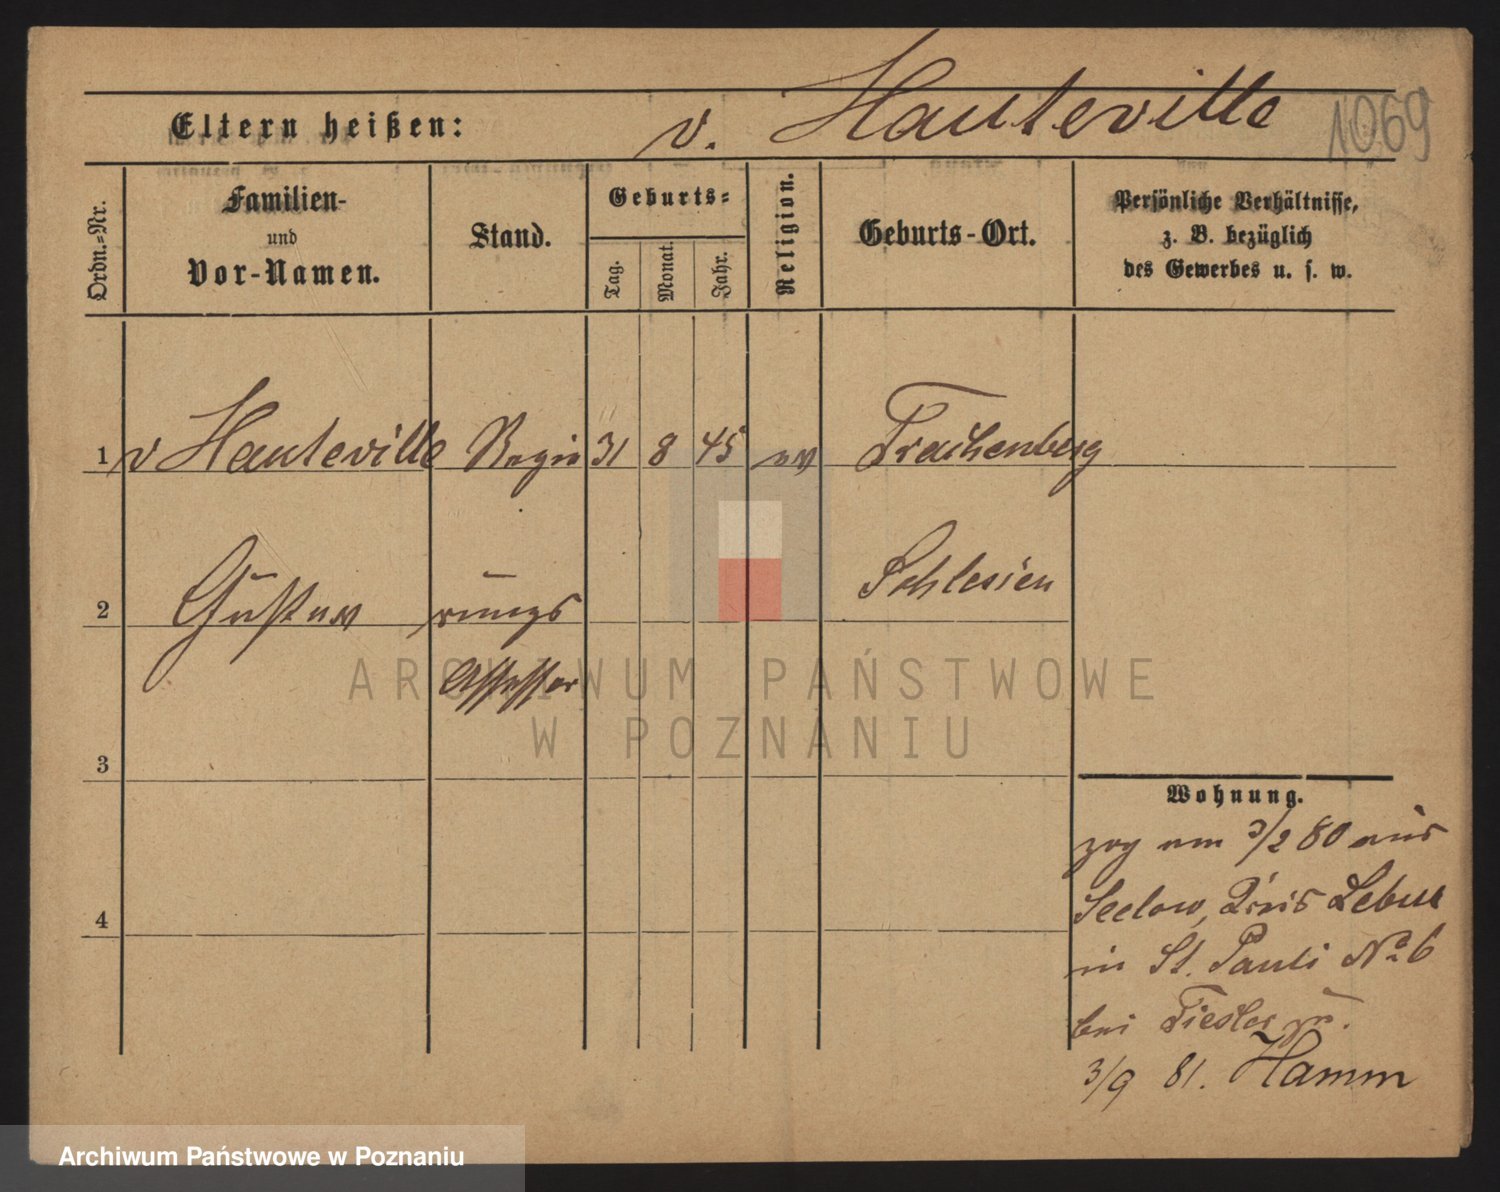 Eltern heißen: v. Hauteville 1069
Ordn.=Nr.
Familien-
und
Vor-Namen.
Stand.
Geburts=
Tag.
Monat.
Jahr.
Religion.
Geburts-Ort.
Persönliche Verhältnisse,
z. B. bezüglich
des Gewerbes u. s. w.
1 v Hauteville Regie 31 8 45 ev Trachenberg
2 Gustav rungs Schlesien
Assessor
ARCHIWUM PAŃSTWOWE
W POZNANIU
3
Wohnung.
zog am 3/2 80 aus
Seelow, Kreis Lebus
4
in St. Pauli No 6
bei Tiesler
3/9 81. Hamm
Archiwum Państwowe w Poznaniu